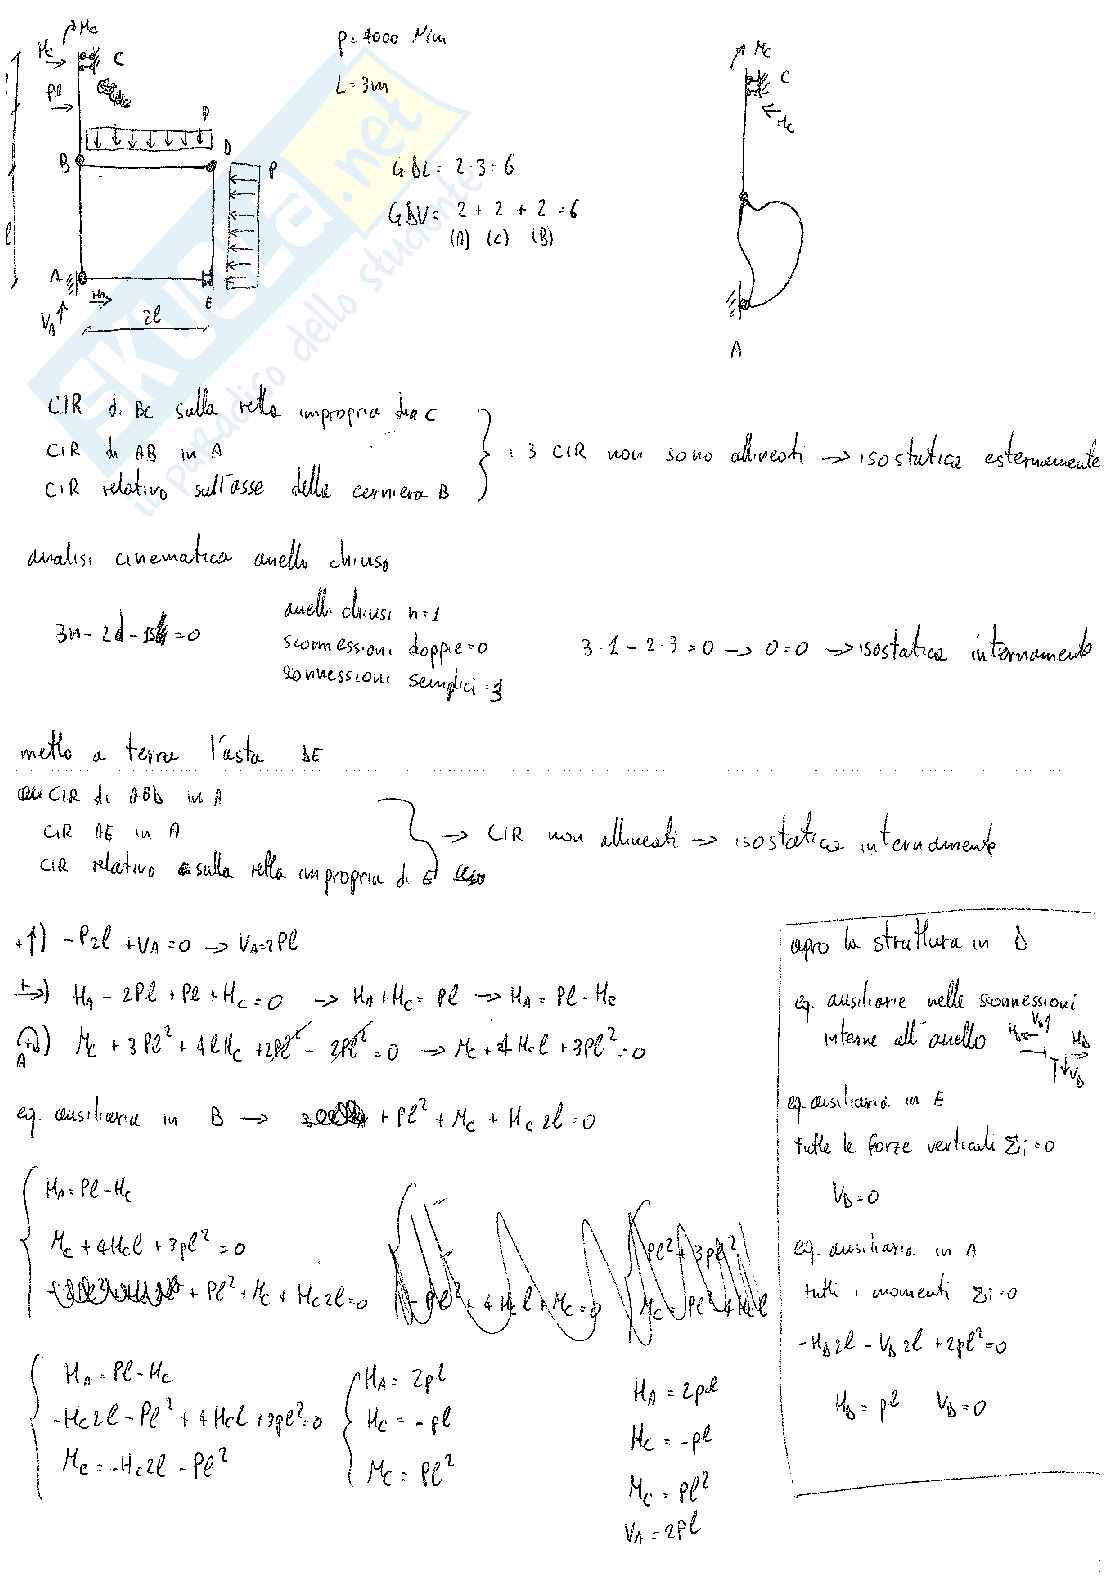 Mc
Hc
C
Pl
P
D
B
P
l
A
HA
E
VA
2l
p = 4000 N/m
L = 3m
GDL = 2·3 = 6
GDV = 2 + 2 + 2 = 6
(A) (C) (B)
Mc
C
Hc
A
SKUOLA.net
il paradiso dello studente
CIR di BC sulla retta impropria di C
CIR di AB in A
CIR relativo sull'asse della cerniera B
: 3 CIR non sono allineati → isostatica esternamente
analisi cinematica anello chiuso
3n - 2d - 1s = 0
anelli chiusi n=1
sconnessioni doppie = 0
connessioni semplici = 3
3·1 - 2·3 = 0 → 0=0 → isostatica internamente
metto a terra l'asta DE
CIR di ABD in A
CIR AE in A
CIR relativo sulla retta impropria di E
→ CIR non allineati → isostatica internamente
+↑) -P2l + VA = 0 → VA = 2Pl
+→) HA - 2Pl + Pl + Hc = 0 → HA + Hc = Pl → HA = Pl - Hc
A) Mc + 3Pl² + 4lHc + 2Pl² - 2Pl² = 0 → Mc + 4Hcl + 3Pl² = 0
eq. ausiliaria in B → + Pl² + Mc + Hc2l = 0
HA = Pl - Hc
Mc + 4Hcl + 3pl² = 0
+ Pl² + Mc + Hc2l = 0
HA = Pl - Hc
-Hc2l - Pl² + 4Hcl + 3pl² = 0
Mc = -Hc2l - Pl²
HA = 2pl
Hc = -pl
Mc = Pl²
HA = 2pl
Hc = -pl
Mc = Pl²
VA = 2Pl
apro la struttura in D
eq. ausiliarie nelle sconnessioni
interne all'anello
VD
HD
HD
VD
eq. ausiliaria in E
tutte le forze verticali Σi = 0
VD = 0
eq. ausiliaria in A
tutti i momenti Σi = 0
-HD2l - VD2l + 2pl² = 0
HD = pl VD = 0